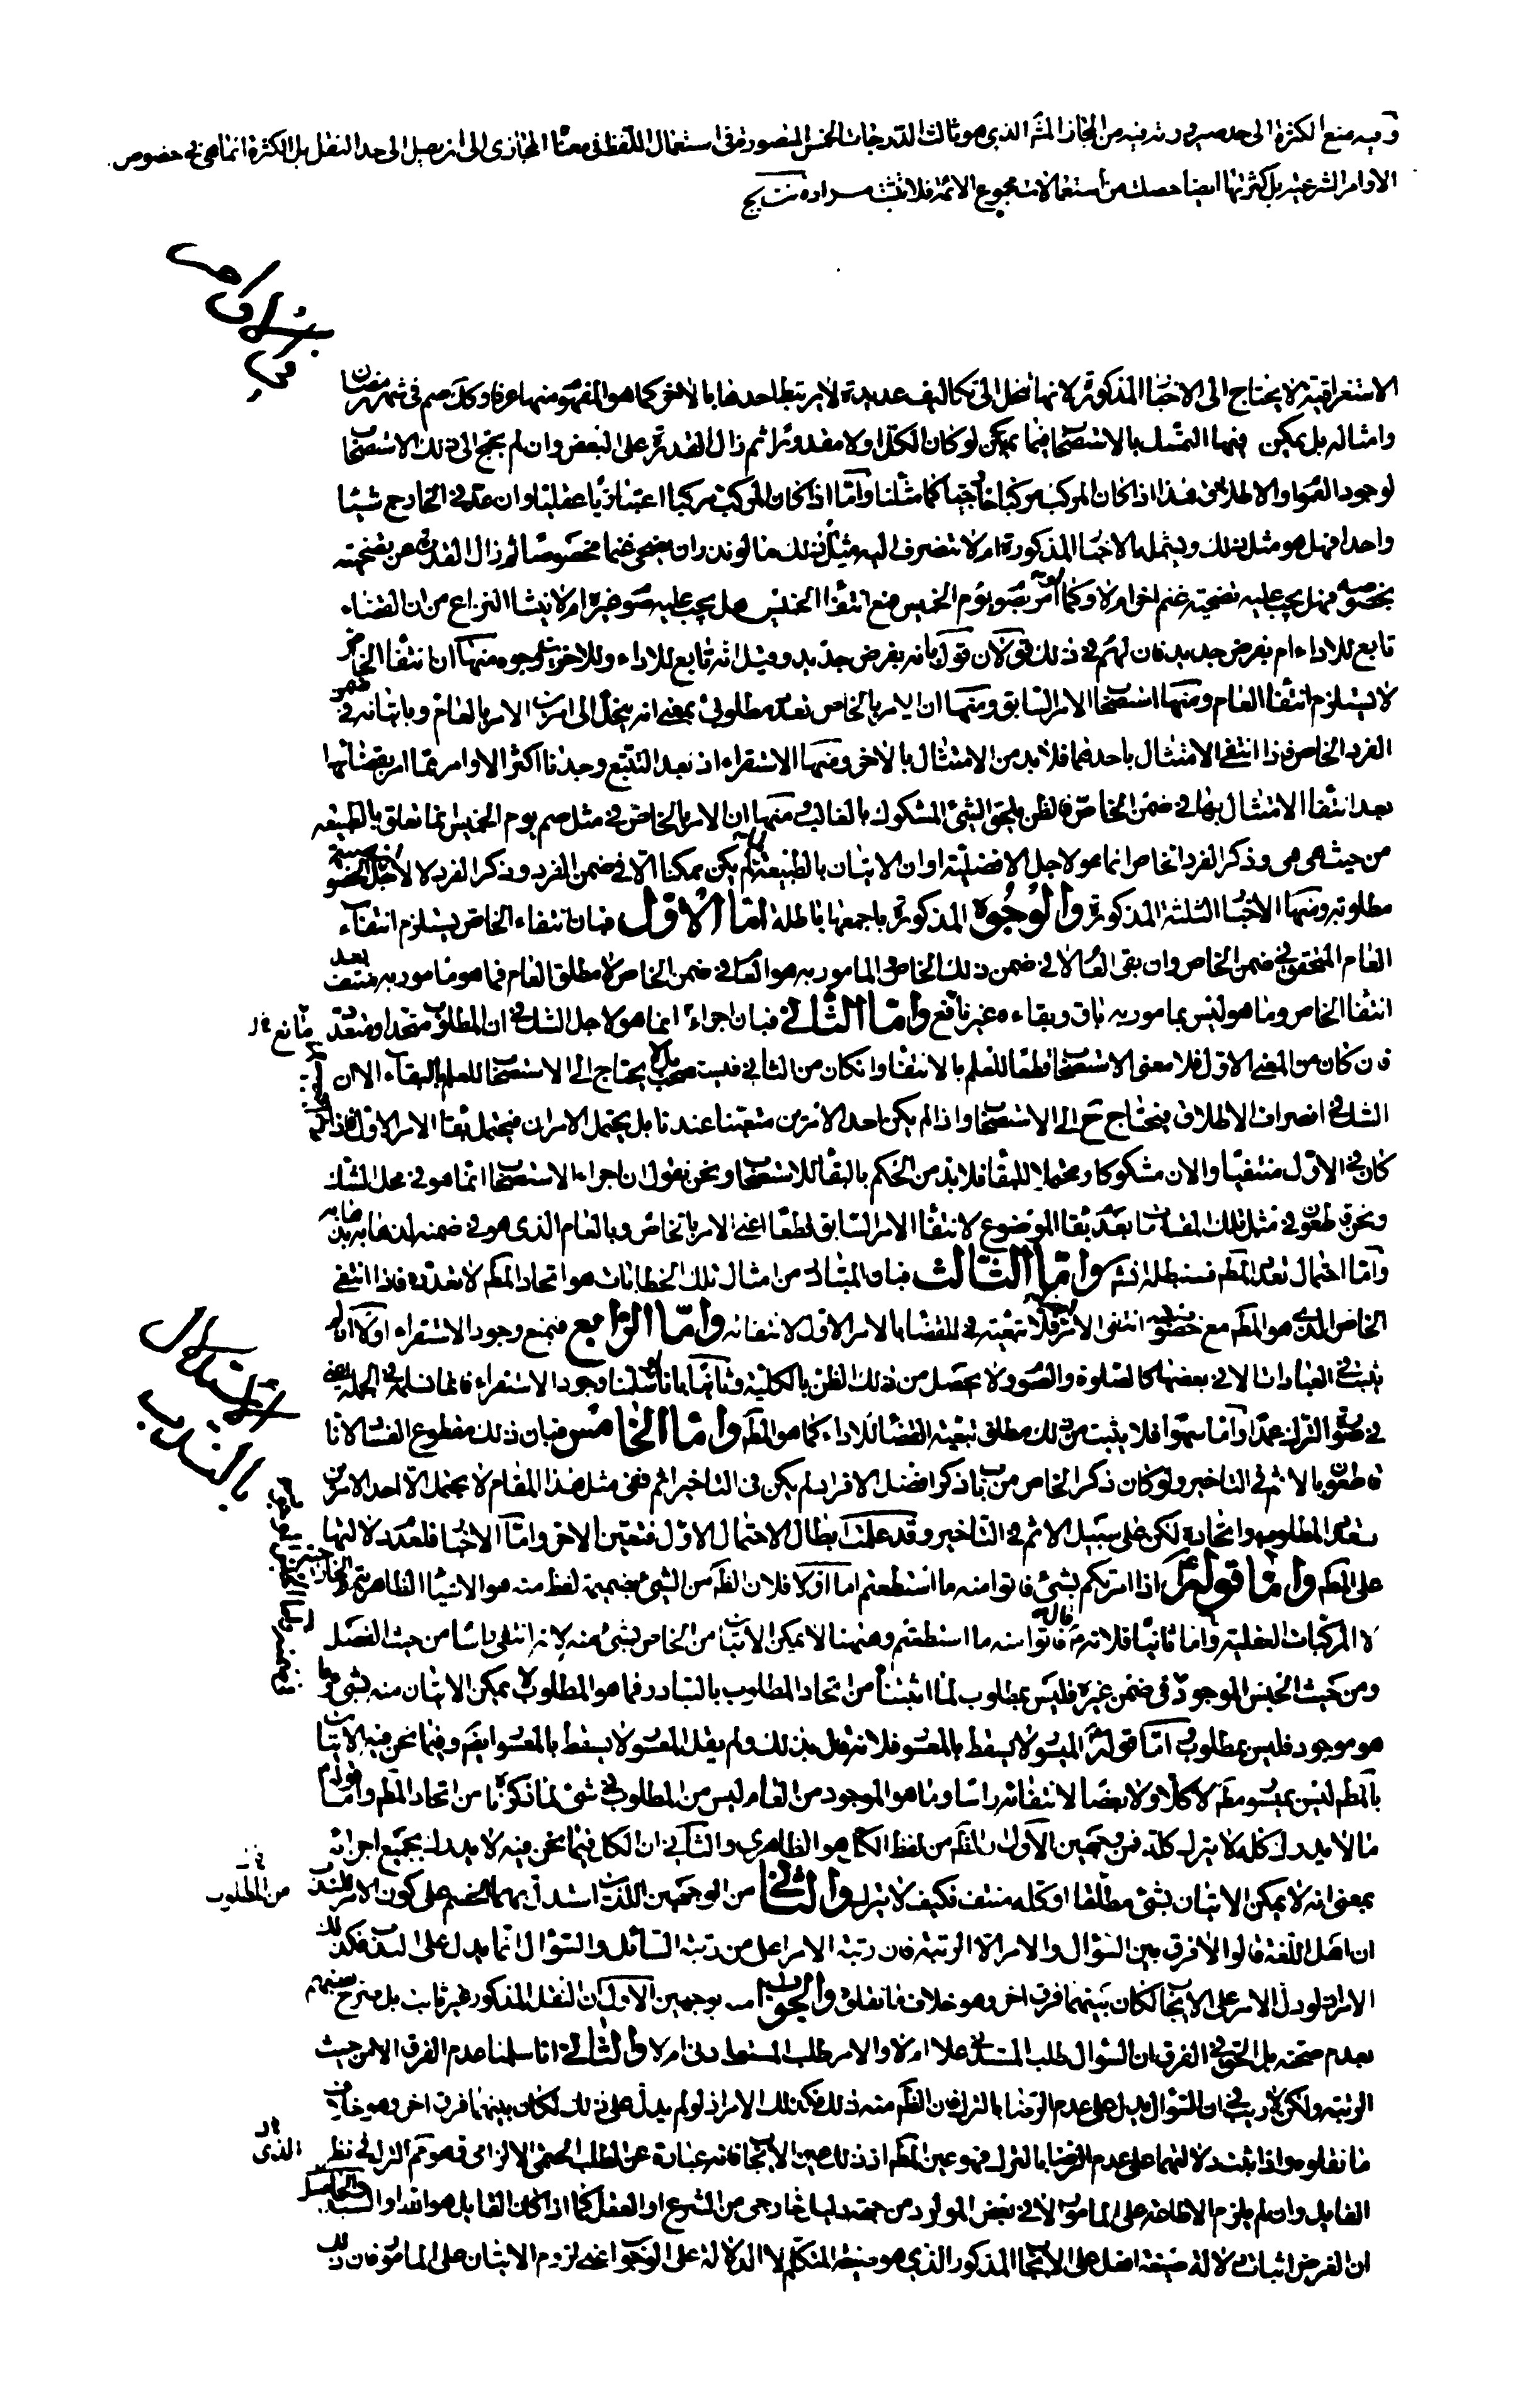 وفيه منع الكثرة الى حد صيرورته من المجاز الذي هو ثالث الدرجات الخمس المتصورة في استعمال اللفظ في معناه المجازى الى ان يصل الى حد النقل بل الكثرة انما هى فى خصوص
الاوامر الشرعية بل كثرتها ايضا حصلت من استعمالات مجموع الائمة فلا يثبت مراده
الاستغراقية لا يحتاج الى الاخبار المذكورة لانها تنحل الى تكاليف عديدة لا يرتبط احدها بالاخرى كما هو المفهوم منها عرفا وكك صم فى شهر رمضان
وامثاله بل يمكن فيها التمسك بالاستصحاب فيما يمكن لو كان الكل اولا مقدورا ثم زال القدرة على البعض وان لم يحتج الى ذلك الاستصحاب
لوجود العموم والاطلاق هذا اذا كان المركب مركبا خارجيا كما مثلنا وامّا اذا كان المركب مركبا اعتباريا عقليا وان عد فى الخارج شيئا
واحدا فهل هو مثل ذلك ويشمله الاخبار المذكورة ام لا تنصرف اليه مثال ذلك ما لو نذر ان يضحى غنما مخصوصا ثم زال القدرة عن تضحيته
بخصوصه فهل يجب عليه تضحية غنم اخر ام لا وكما لو امر بصوم يوم الخميس مع انتفاء الخميس هل يجب عليه صوم غيره ام لا ينشا النزاع من ان القضاء
تابع للاداء ام بفرض جديد فان لهم فى ذلك قولان قول بانه بفرض جديد وقيل انه تابع للاداء وللاخرين وجوه منها ان انتفاء الخاص
لا يستلزم انتفاء العام ومنها استصحاب الامر السابق ومنها ان الامر بالخاص تعدد مطلوبى بمعنى انه ينحل الى امرين الامر بالعام وباتيانه فى ضمن
الفرد الخاص فاذا انتفى الامتثال باحدهما فلا بد من الامتثال بالاخر ومنها الاستقراء اذ بعد التتبع وجدنا اكثر الاوامر مما امر بقضائها
بعد انتفاء الامتثال بها فى ضمن الخاص فالظن يلحق الشئ المشكوك بالغالب ومنها ان الامر بالخاص فى مثل صم يوم الخميس انما تعلق بالطبيعة
من حيث هى هى وذكر الفرد الخاص انما هو لاجل الافضلية او ان الاتيان بالطبيعة لم يكن ممكنا الا فى ضمن الفرد وذكر الفرد لا لاجل الخصوصية
مطلوبه ومنها الاخبار الثلثة المذكورة والوجوه المذكورة باجمعها باطلة امّا الاول فبان انتفاء الخاص يستلزم انتفاء
العام المتحقق فى ضمن الخاص وان بقى العام لا فى ضمن ذلك الخاص والمامور به هو العام فى ضمن الخاص لا مطلق العام فما هو مامور به منتف بعد
انتفاء الخاص وما هو ليس بمامور به باق وبقاءه غير نافع وامّا الثانى فبان اجراءه انما هو لاجل الشك فى ان المطلوب متحد او متعدد
فان كان من المعنى الاول فلا معنى للاستصحاب قطعا للعلم بالانتفاء وان كان من الثانى فيستصحب بل لا يحتاج الى الاستصحاب للعلم بالبقاء الان
الشك فى انصراف الاطلاق يحتاج ح الى الاستصحاب واذا لم يكن احد الامرين متعينا عندنا بل يحتمل الامران فيحتمل بقاء الامر الاول
كان فى الاول منتفيا والان مشكوكا ومحتملا للبقاء فلا بد من الحكم بالبقاء للاستصحاب ونحن نقول ان اجراء الاستصحاب انما هو فى محل الشك
ونحن قاطعون فى مثل تلك المقامات بعدم بقاء الموضوع لانتفاء الامر السابق قطعا اعنى الامر بالخاص وبالعام الذى هو فى ضمنه
وامّا احتمال تعدد المطلوب فسنبطله وامّا الثالث فبان المتبادر من امثال تلك الخطابات هو اتحاد المطلوب لا تعدده فاذا انتفى
الخاص الذى هو المطلوب مع خصوصيته انتفى الامر فلا تبعية فى للقضاء بالامر الاول لانتفائه وامّا الرابع فبمنع وجود الاستقراء اولا
يثبت فى العبادات الا فى بعضها كالصلوة والصوم ولا يحصل من ذلك الظن بالكلية وثانيا بانا لو سلمنا وجود الاستقراء فانما نسلمه فى الجملة يعنى
فى صورة الترك عمدا وامّا سهوا فلا يثبت من ذلك مطلق تبعية القضاء للاداء كما هو المطلوب وامّا الخامس فبان ذلك مقطوع الفساد لانا
قاطعون بالاثم فى التاخير ولو كان ذكر الخاص من باب ذكر افضل الافراد لم يكن فى التاخير اثم ففى مثل هذا المقام لا يحتمل الا احد الامرين
تعدد المطلوب واتحاده لكن على سبيل الاثم فى التاخير وقد علمت ابطال الاحتمال الاول فتعين الاخر وامّا الاخبار فلعدم دلالتها
على المطلوب وامّا قوله اذا امرتكم بشئ فاتوا منه ما استطعتم اما اولا فلان الظاهر من الشئ بضميمة لفظ منه هو الاشياء الظاهرية
لا المركبات العقلية وامّا ثانيا فلانه قال فاتوا منه ما استطعتم وههنا لا يمكن الاتيان من الخاص بشئ منه لانه انتفى راسا من حيث الفصل
ومن حيث الجنس الموجود فى ضمن غيره فليس بمطلوب لما اثبتنا من اتحاد المطلوب بالتبادر فما هو المطلوب لا يمكن الاتيان منه بشئ وما
هو موجود فليس بمطلوب امّا قوله الميسور لا يسقط بالمعسور فلانه قال بذلك ولم يقل المعسور لا يسقط بالمعسور ايضا وفيما نحن فيه الاتيان
بالمطلوب ليس بميسور مط لا كلا ولا بعضا لانتفائه راسا وما هو الموجود من العام ليس من المطلوب فى شئ لما ذكرنا من اتحاد المطلوب وامّا قوله
ما لا يدرك كله لا يترك كله فمن وجهين الاول ان الظاهر من لفظ الكل هو الظاهرى والثانى ان الكل فيما نحن فيه لا يدرك بجميع اجزائه
بمعنى انه لا يمكن الاتيان بشئ مطلقا اذ كله منتف فكيف لا يترك والثانى من الوجهين اللذين استدل بهما الخصم على كون الامر للندب
ان اهل اللغة قالوا لا فرق بين السؤال والامر الا الرتبة فان رتبة الامر اعلى من رتبة السائل والسؤال انما يدل على الندب فكذلك
الامر اذ لو دل الامر على الايجاب لكان بينهما فرق اخر وهو خلاف ما نقلوه والجواب بوجهين الاول ان النقل المذكور غير ثابت بل صرح بعضهم
بعدم صحته بل الحق فى الفرق ان السؤال طلب المستدنى علا ام لا والامر طلب المستعلى دنى ام لا والثانى انا سلمنا عدم الفرق الا من حيث
الرتبة ولكن لا ريب فى ان السؤال يدل على عدم الرضا بالترك فان الظاهر منه ذلك فكذلك الامر اذ لو لم يدل على ذلك لكان بينهما فرق اخر وهو خلاف
ما نقلوه واذا ثبت دلالتهما على عدم الرضا بالترك فهو عين المطلوب اذ ذلك عين الايجاب فانه عبارة عن الطلب الحتمى الالزامى فهو محرم الترك فى نظر
القايل وان لم يلزم الاطاعة على المامور الا فى بعض الموارد من جهة دليل خارجى من الشرع او العقل كما اذا كان القايل هو الله او السيد والحاصل
ان الغرض اثبات دلالة صيغة افعل على الايجاب المذكور الذى هو صفة المتكلم لا الدلالة على الوجوب اعنى لزوم الاتيان على المامور فان ذلك
مانع
من المطلوب
الذى
الاستدلال
بالندب